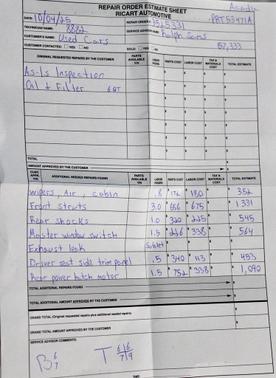 REPAIR ORDER ESTIMATE SHEET
RICART AUTOMOTIVE
Acadia
DATE 10/04/25
REPAIR ORDER #
PRT53471A
TECHNICIAN NAME:
SERVICE ADVISOR
Ralph Sims
CUSTOMER'S NAME: Used Cars
CUSTOMER CONTACTED: YES NO
SOLD: YES NO
ORIGINAL REQUESTED REPAIRS BY THE CUSTOMER PARTS AVAILABLE ON LABOR TIME PARTS COST LABOR COST TAX & MATERIALS COST TOTAL ESTIMATE
As-Is Inspection
Oil + Filter 6 QT
TOTAL
AMOUNT APPROVED BY THE CUSTOMER
ADDITIONAL NEEDED REPAIRS FOUND PARTS AVAILABLE ON LABOR TIME PARTS COST LABOR COST TAX & MATERIALS COST TOTAL ESTIMATE
Wipers, Air, cabin .8 180
Front struts 3.0 656 675 1,331
Rear shocks 1.0 320 225 545
Master window switch 1.5 226 338 564
Exhaust leak Sublet
Driver seat side trim panel .5 340 113 453
Rear power hatch motor 1.5 752 338 1,090
TOTAL ADDITIONAL REPAIRS FOUND
TOTAL ADDITIONAL AMOUNT APPROVED BY THE CUSTOMER
GRAND TOTAL (Original requested repairs plus additional needed repairs)
GRAND TOTAL AMOUNT APPROVED BY THE CUSTOMER
SERVICE ADVISOR COMMENTS:
B 6/7 T 6/6 7/9